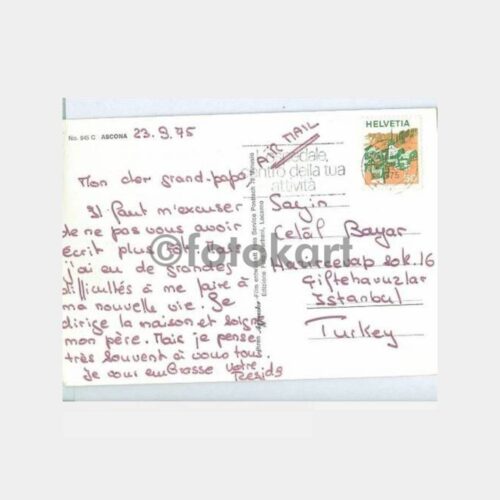 No. 945 C ASCONA
23.9.75
AIR MAIL
HELVETIA
entro della tua
attività
Mon cher grand-papa
Il faut m'excuser
de ne pas vous avoir
écrit plus
j'ai eu de grandes
difficultés à me faire à
ma nouvelle vie. Je
dirige la maison et soigne
mon père. Mais je pense
très souvent à vous tous.
Je vous embrasse votre
Sayin
Celâl Bayar
sok. 16
Çiftehavuzlar
Istanbul
Turkey
©fotokart